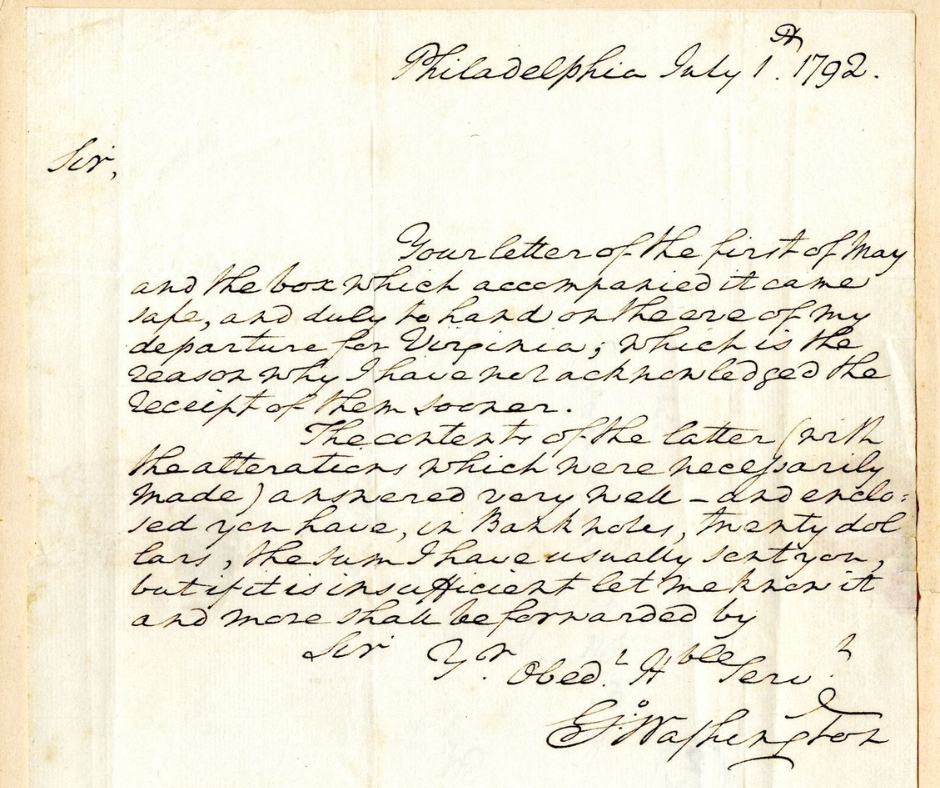 Philadelphia July 1st. 1792.
Sir,
Your letter of the first of May
and the box which accompanied it came
safe, and duly to hand on the eve of my
departure for Virginia; which is the
reason why I have not acknowledged the
receipt of them sooner.
The contents of the latter (with
the alterations which were necessarily
made) answered very well – and enclo=
sed you have, in Bank notes, twenty dol
lars, the sum I have usually sent you,
but if it is insufficient let me know it
and more shall be forwarded by
Sir Yr. Obedt Hble Servt
Go: Washington